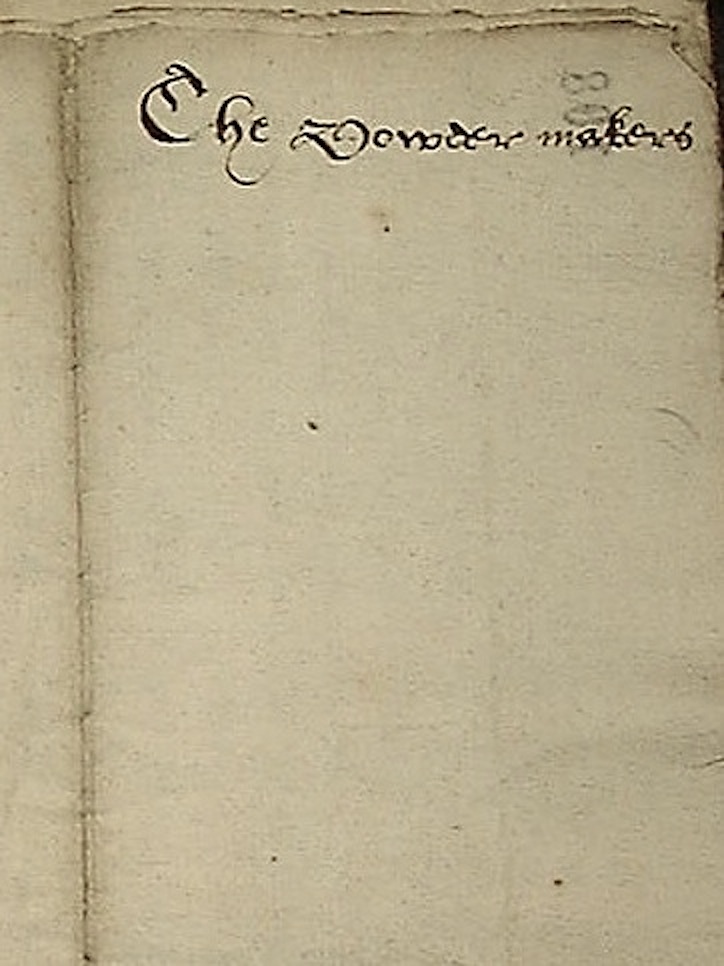 The Powder makers